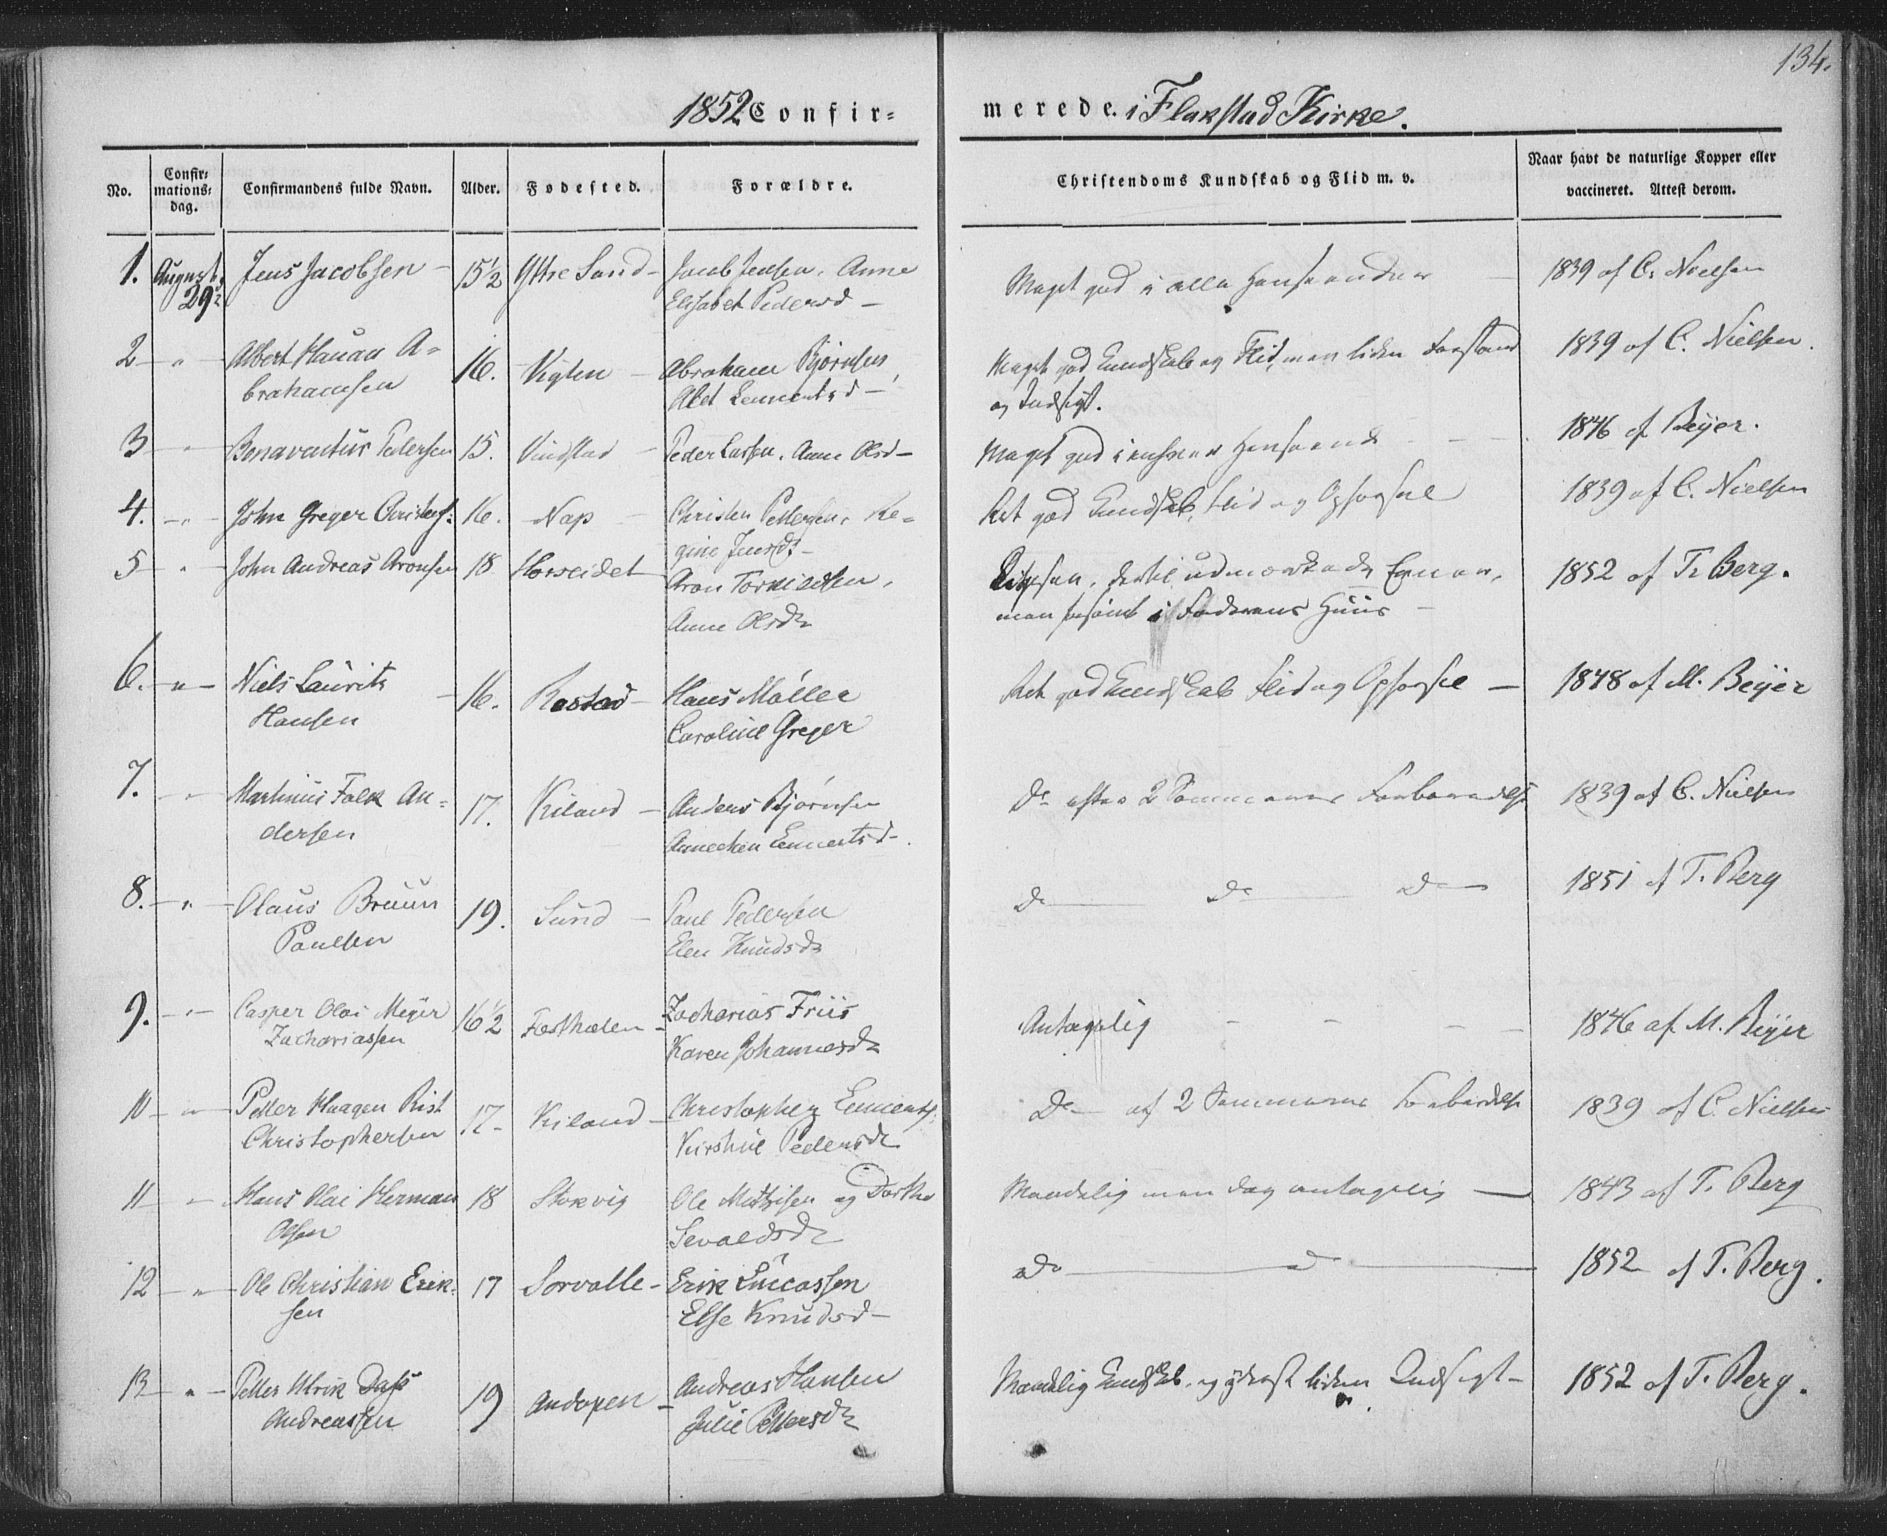 134.
1852 Confirmerede. i Flakstad Kirke.
No. Confirmationsdag. Confirmandens fulde Navn. Alder. Fødested. Forældre. Christendoms Kundskab og Flid m. v. Naar havt de naturlige Kopper eller vaccineret. Attest derom.
1. August 29de Jens Jacobsen 15 1/2 Yttre Sand Jacob Jensen, Anne Meget god i alle Henseender 1839 af C. Nielsen
Elisabet Pedersd
2 " Albert Hauan A= 16. Vigten Abraham Bjørnsen, Meget god Kundskab og Flid, men liden Forstand 1839 af C. Nielsen.
brahamsen Abet Lennertsd og Indsigt.
3 " Bonaventus Pedersen 15. Vindstad Peder Larsen, Anne Olsd Meget god i enhver Henseende 1846 af Beyer.
4. " John Greger Christens: 16. Nap Christen Pettersen, Re= Ret god Kundskab, Flid og Opførsel 1839 af C. Nielsen
gine Jensdr
5 " John Andreas Aronsen 18 Horseidet Aron Torkildsen, dertil udmærkede Evner, 1852 af T. Berg.
Anne Olsdr men forsømt i Faderens Huus
6. " Niels Laurits 16. Rastad Hans Møller Ret god Kundskab Flid og Opførsel 1848 af M. Beyer
Hansen Caroline Greger
7. " Martinus Falk An= 17. Kiland Anders Bjørnsen Do efter 2 Sommeres Forberedelse 1839 af C. Nielsen
dersen Annechen Lennertsd
8. " Olaus Bruun 19. Sund Paul Pedersen Do Do Do 1851 af T. Berg
Paulsen Elen Knudsdr
9. " Casper Olai Meyer 16 1/2 Zacharias Friis Antagelig 1846 af M. Beyer
Zachariassen Karen Johannesdr
10 " Petter Haagen Rist 17 Kiland Christopher Lennerts: Do af 2 Sommeres Forberedelse 1839 af C. Nielsen
Christophersen Kirstine Pedersdr
11 " Hans Olai Herman 18 Stokvig Ole Mathisen og Dorthe Maadelig men dog antagelig 1843 af T. Berg
Olsen Sevaldsdr
12 " Ole Christian Erik= 17 Sorvalle Erik Lucassen Do Do 1852 af T. Berg.
sen Else Knudsd
13 " Petter Ulrik Dass 19 Andopen Andreas Hansen Maadelig Kundskab, og yderst liden Indsigt 1852 af T. Berg.
Andreassen Julie Pettersdr